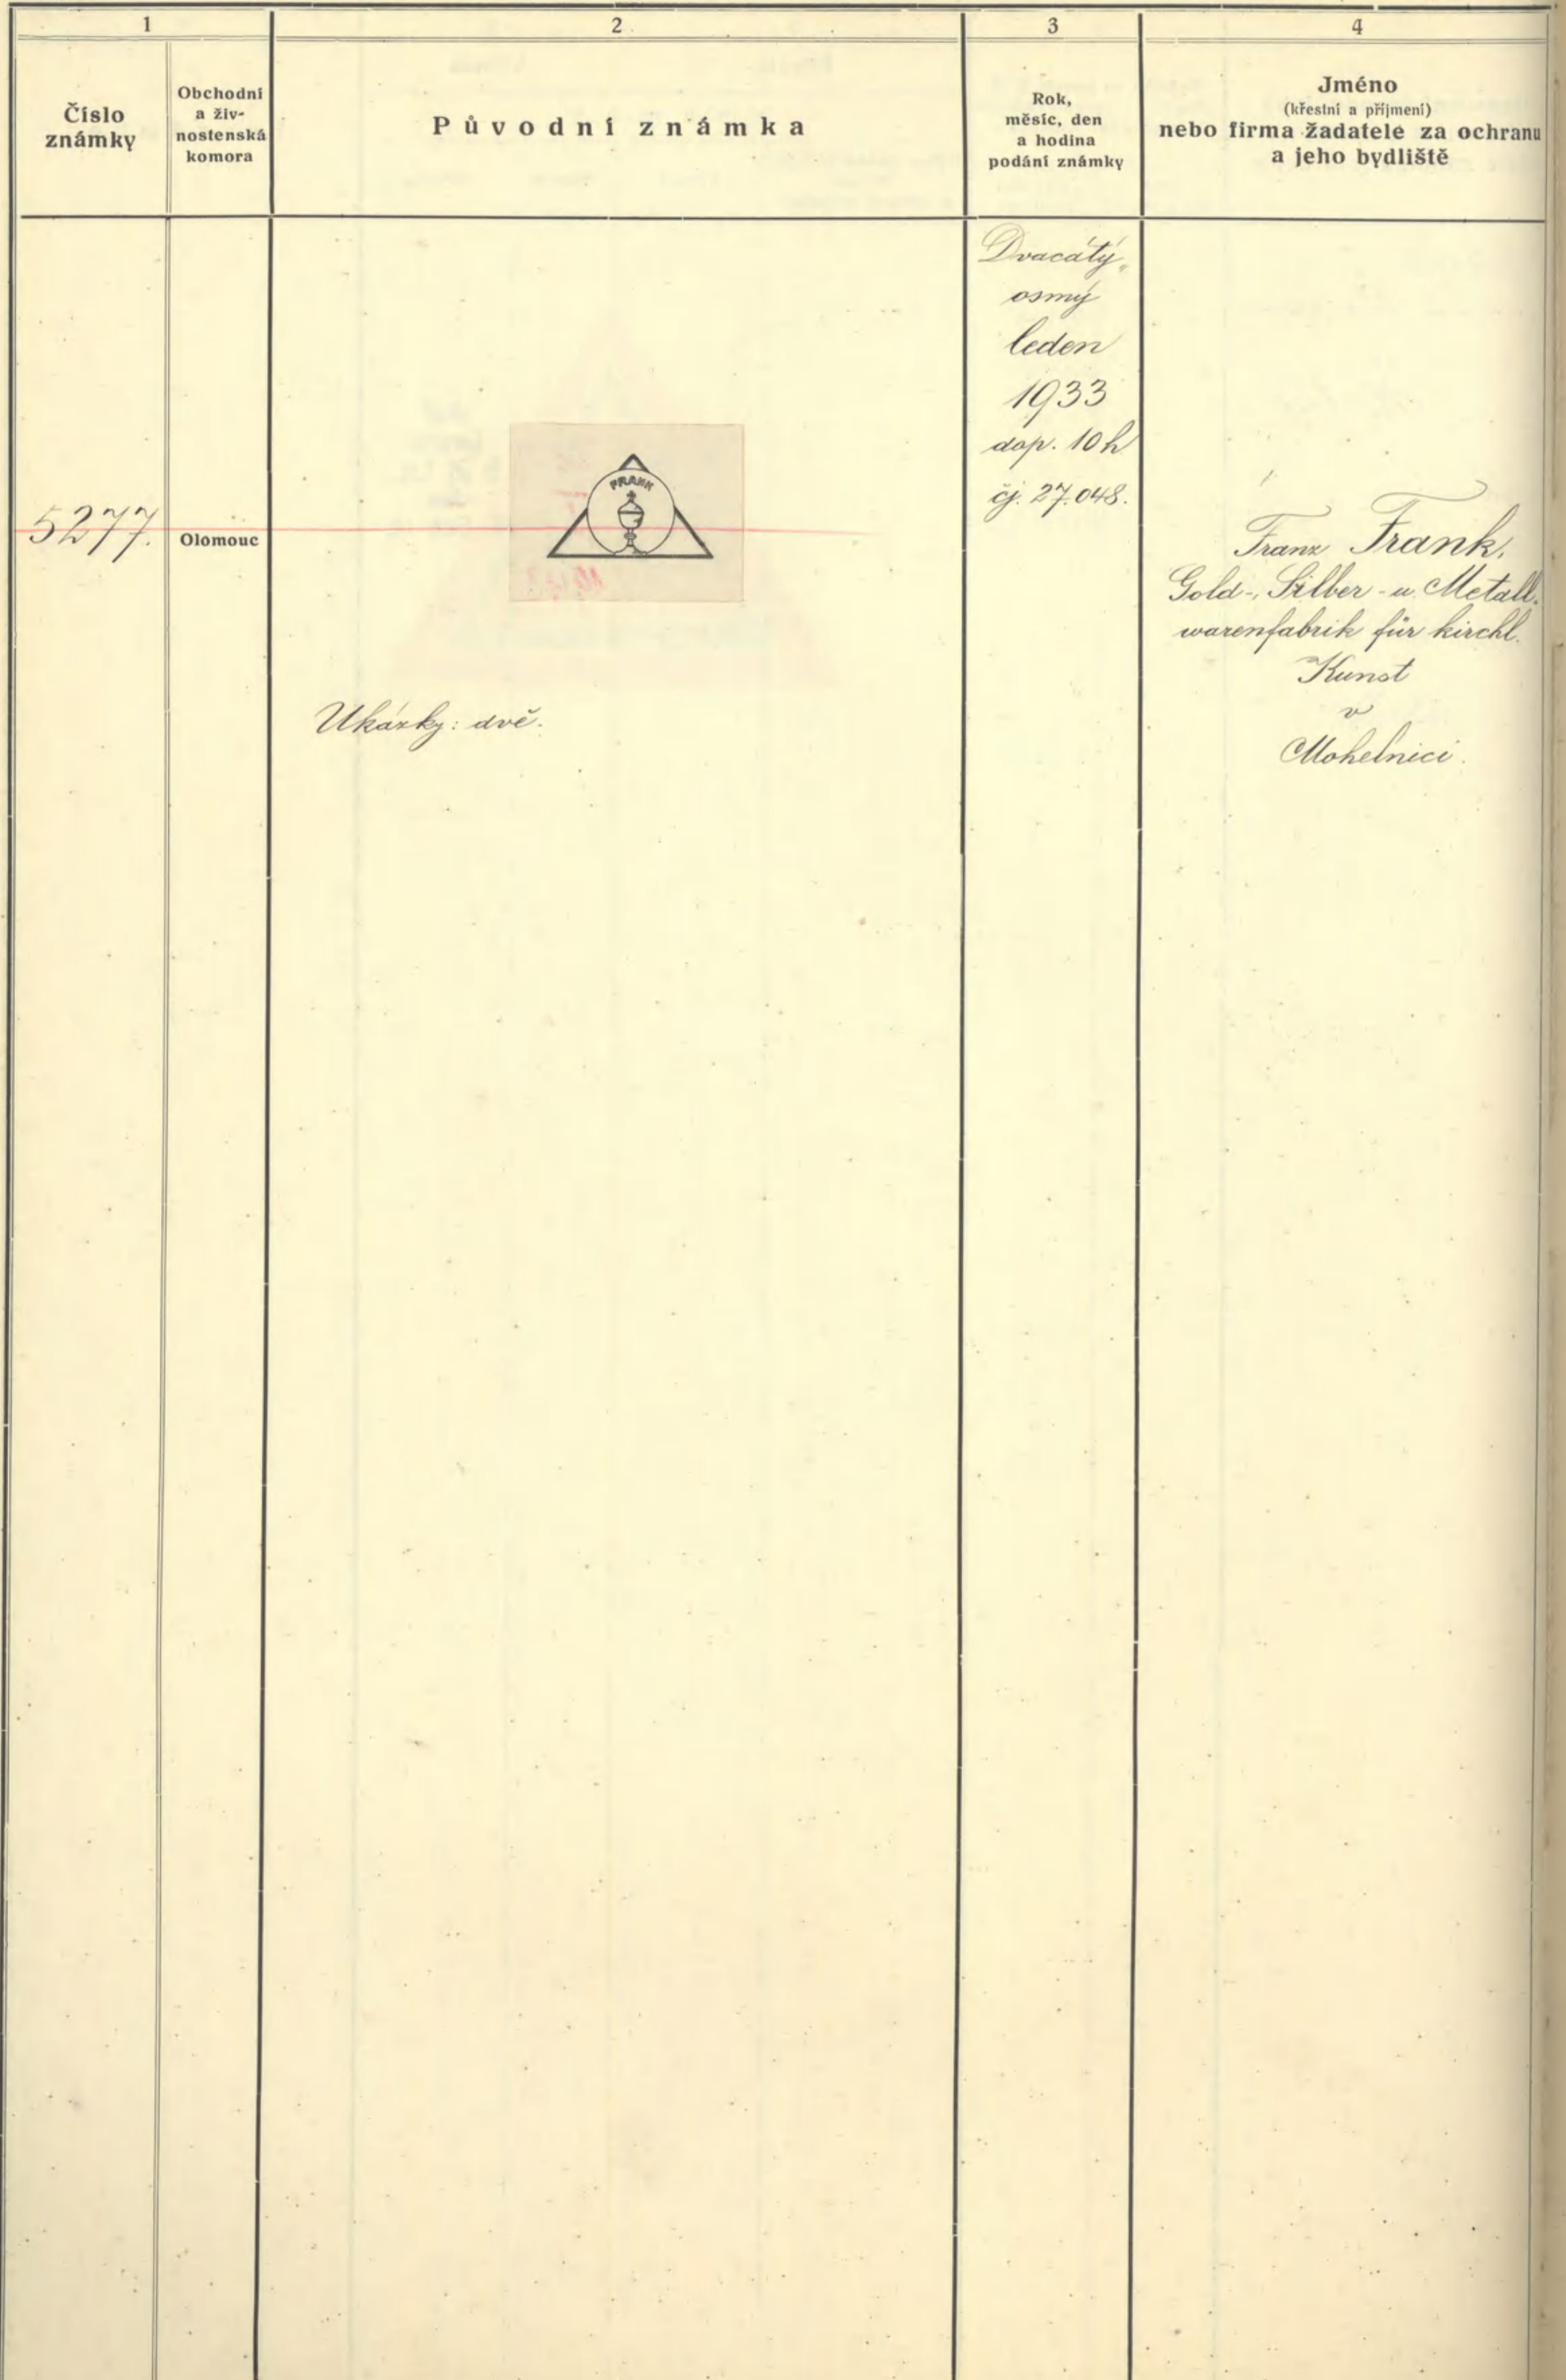 1
2
3
4
Číslo
známky
Obchodní
a živ-
nostenská
komora
Původní známka
Rok,
měsíc, den
a hodina
podání známky
Jméno
(křestní a příjmení)
nebo firma žadatele za ochranu
a jeho bydliště
5277.
Olomouc
FRANK
Ukázky: dvě.
Dvacátý
osmý
leden
1933
dop. 10 h
čj. 27.048.
Franz Frank,
Gold-, Silber- u. Metall-
warenfabrik für kirchl.
Kunst
v
Mohelnici.